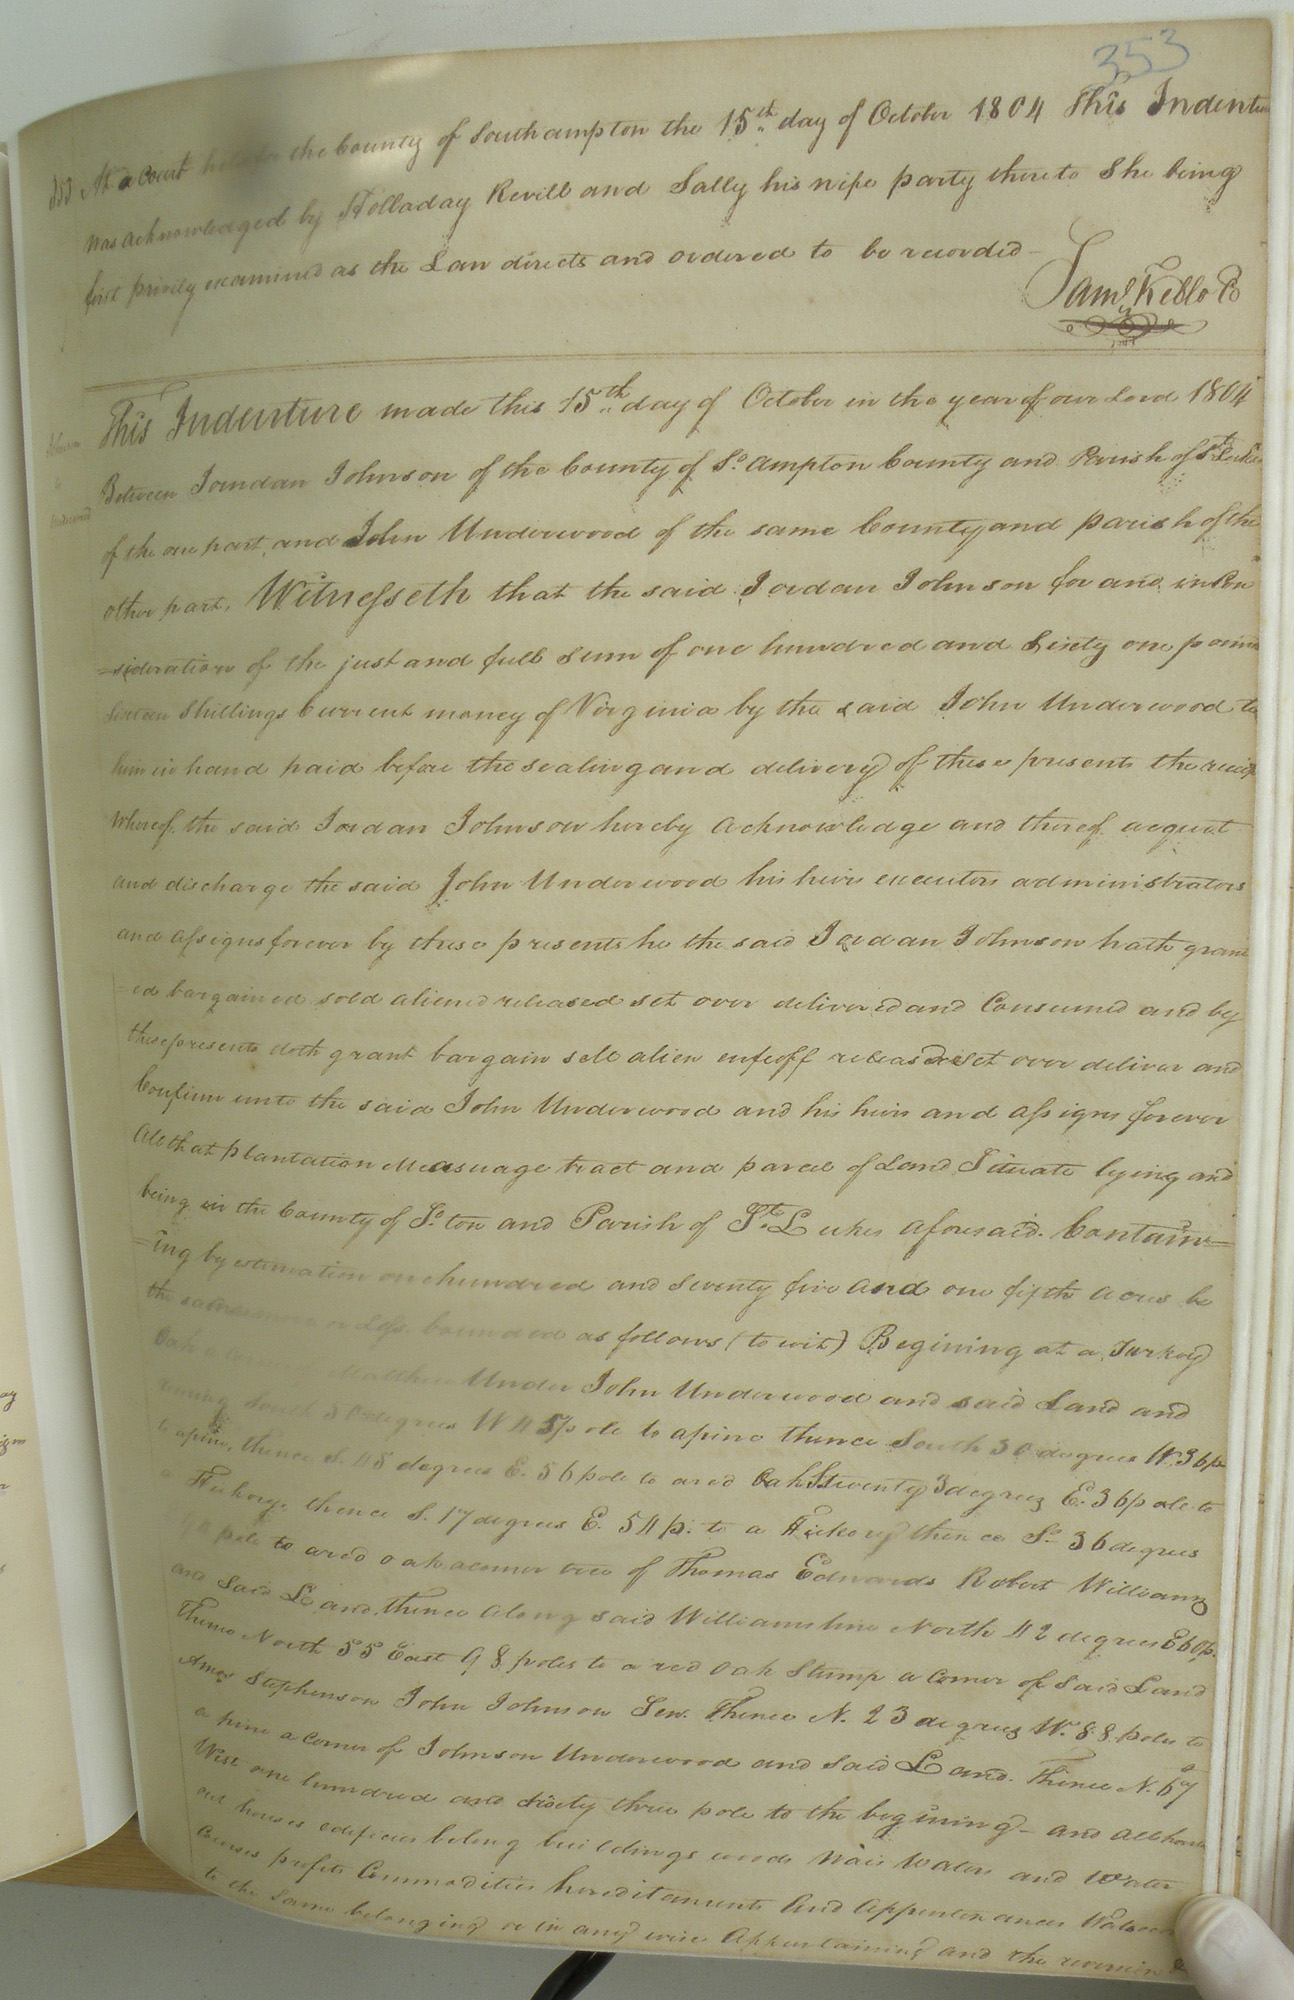 353
353 At a Court held for the County of Southampton the 15th day of October 1804 This Indentu
was acknowledged by Holladay Revill and Sally his wife party thereto She being
first privily examined as the Law directs and ordered to be recorded
Saml. Kello C
Johnson
to
Underwood
This Indenture made this 15th day of October in the year of our Lord 1804
Between Jourdan Johnson of the County of So.ampton County and Parish of St. Lukes
of the one part, and John Underwood of the same County and parish of the
other part, Witnesseth that the said Jordan Johnson for and in Con
=sideration of the just and full sum of one hundred and Sixty one
Shillings Current money of Virginia by the said John Underwood to
him in hand paid before the sealing and delivery of these presents the
whereof the said Jordan Johnson hereby acknowledge and thereof acquit
and discharge the said John Underwood his heirs executors administrators
and assigns forever by these presents he the said Jordan Johnson hath grant
=ed bargained sold aliened released set over delivered and Consumed and by
these presents doth grant bargain sell alien enfeoff release Set over deliver and
Confirm unto the said John Underwood and his heirs and assigns forever
All that plantation Measuage tract and parcel of Land Situate lying and
being in the County of So.ton and Parish of St. Lukes aforesaid. Contain=
=ing by estimation one hundred and Seventy five and one fifth acres be
the same more or Less. bounded as follows (to wit) Begining at a Turkey
Oak Matthew Under John Underwood and said Land and
runing South 30 degrees W 45 pole to a pine thence South 30 degrees W. 36 po
to a pine, thence S. 45 degrees E. 56 pole to a red Oak S twenty 3 degrees E. 36 pole to
a Hickory thence S. 17 degrees E. 54 p. to a Hickory thence So. 36 degrees
pole to a red oak a corner tree of Thomas Edwards Robert Williams
and Said Land, thence along said Williams line North 42 degrees E 60 p.
Thence North 55 East 98 poles to a red oak Stump a corner of Said Land
Amos Stephenson John Johnson Sen. Thence N. 23 degrees W. 88 poles to
a pine a corner of Johnson Underwood and Said Land. Thence N. 67
West one hundred and Sixty three pole to the begining - and all
out houses edifices belong buildings woods ways waters and Water
Courses profits Commodities hereditaments And Appurtenances
to the Same belonging or in any wise Appurtaining and the